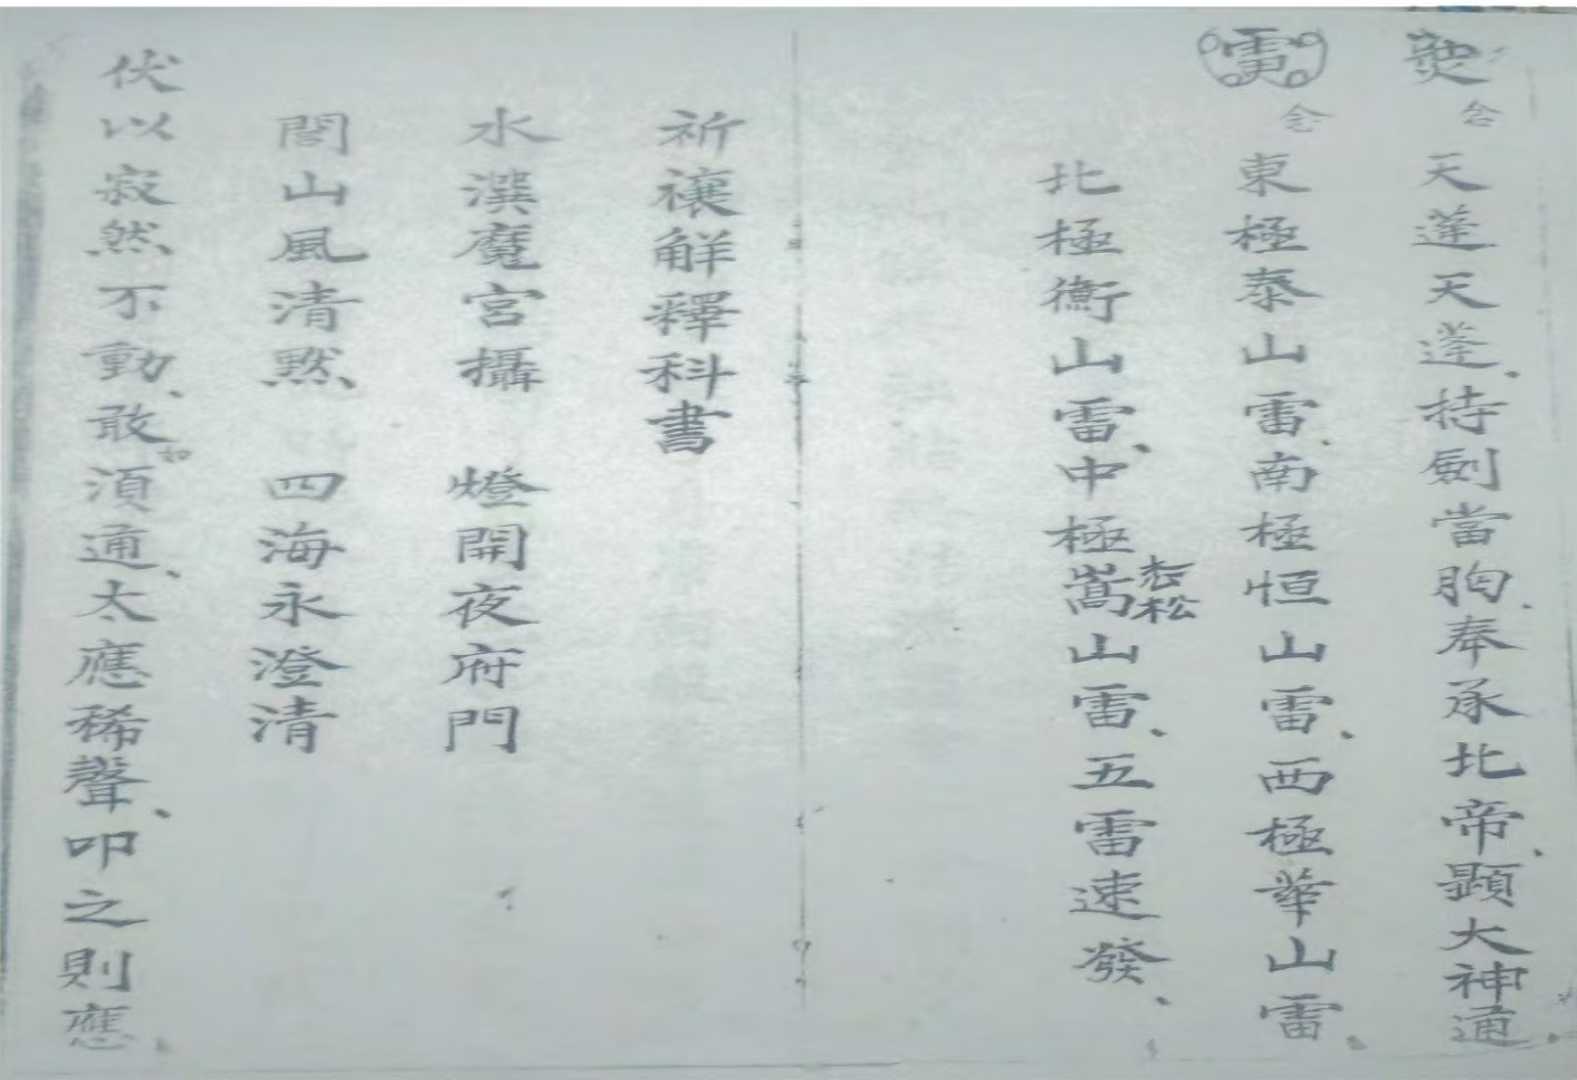 念天蓬天蓬、持劍當胸、奉承北帝、顯大神通、
雷念東極泰山雷、南極恒山雷、西極華山雷、
北極衡山雷、中極嵩山雷、五雷速發、
松
祈禳解釋科書
水潠魔宮攝 燈開夜府門
閭山風清黙 四海永澄清
伏以寂然不動、敢湏通、太應稀聲、叩之則應